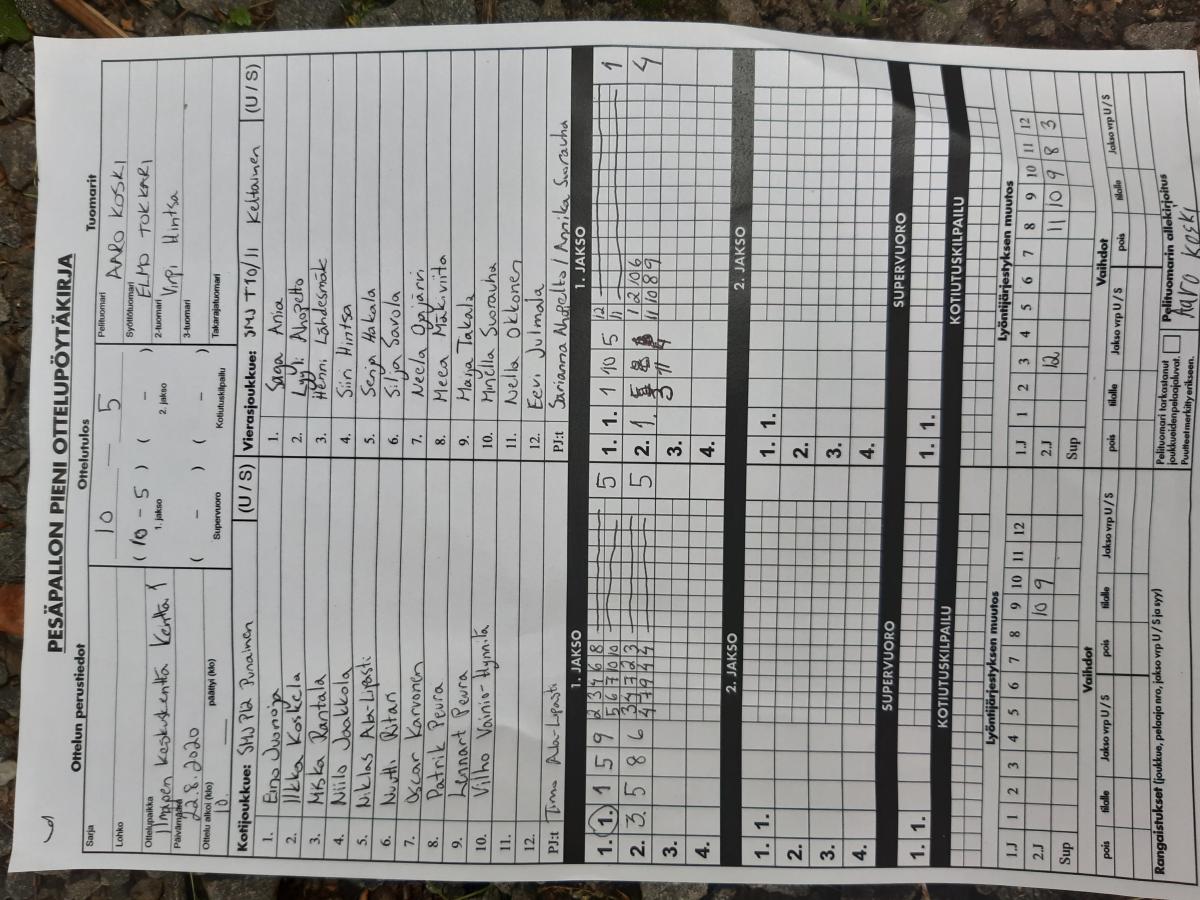 PESÄPALLON PIENI OTTELUPÖYTÄKIRJA
Ottelun perustiedot
Sarja
Lohko
Ottelupaikka
Ilmajoen keskuskenttä Kenttä 1
Päivämäärä
22.8.2020
Ottelu alkoi (klo) päättyi (klo)
10.
Ottelutulos
10 – 5
( 10 – 5 ) ( – )
1. jakso 2. jakso
( – ) ( – )
Supervuoro Kotiutuskilpailu
Tuomarit
Pelituomari AARO KOSKI
Syöttötuomari ELMO TOKKARI
2-tuomari Virpi Hintsa
3-tuomari
Takarajatuomari
Kotijoukkue: SMJ P12 Punainen (U / S)
1. Eino Vuorioja
2. Ilkka Koskela
3. Miska Rantala
4. Niilo Jaakkola
5. Niklas Ala-Lipasti
6. Nuutti Ritari
7. Oscar Karvonen
8. Patrik Peura
9. Lennart Peura
10. Vilho Vainio-Hynnilä
11.
12.
PJ:t Timo Ala-Lipasti
Vierasjoukkue: JMJ T10/11 Keltainen (U / S)
1. Saga Ania
2. Lyyli Ahopelto
3. Henni Lähdesmäk
4. Siiri Hintsa
5. Senja Hakala
6. Silja Savola
7. Neela Ojajärvi
8. Meea Mäkiviita
9. Maija Takala
10. Minella Suorauha
11. Nella Okkonen
12. Eevi Julmala
PJ:t Sarianna Ahopelto / Annika Suorauha
1. JAKSO
1. 1. 1 5 9 2 3 4 6 8 5
5 6 7 10 10
2. 3. 5 8 6 3 4 7 2 3 5
4 7 9 4 4
3.
4.
1. JAKSO
1. 1. 1 10 5 12 1
11
2. 1. 12 10 6 4
3 11 4 11 10 8 9
3.
4.
2. JAKSO
1. 1.
2.
3.
4.
2. JAKSO
1. 1.
2.
3.
4.
SUPERVUORO
1. 1.
SUPERVUORO
1. 1.
KOTIUTUSKILPAILU
KOTIUTUSKILPAILU
Lyöntijärjestyksen muutos
1.J 1 2 3 4 5 6 7 8 9 10 11 12
2.J 10 9
Sup
Vaihdot
pois tilalle Jakso vrp U / S pois tilalle Jakso vrp U / S
Lyöntijärjestyksen muutos
1.J 1 2 3 4 5 6 7 8 9 10 11 12
2.J 12 11 10 9 8 3
Sup
Vaihdot
pois tilalle Jakso vrp U / S pois tilalle Jakso vrp U / S
Rangaistukset (joukkue, pelaaja nro, jakso vrp U / S ja syy)
Pelituomari tarkastanut
joukkueiden pelaajaluvat.
Puutteet merkitty erikseen.
Pelituomarin allekirjoitus
Aaro Koski